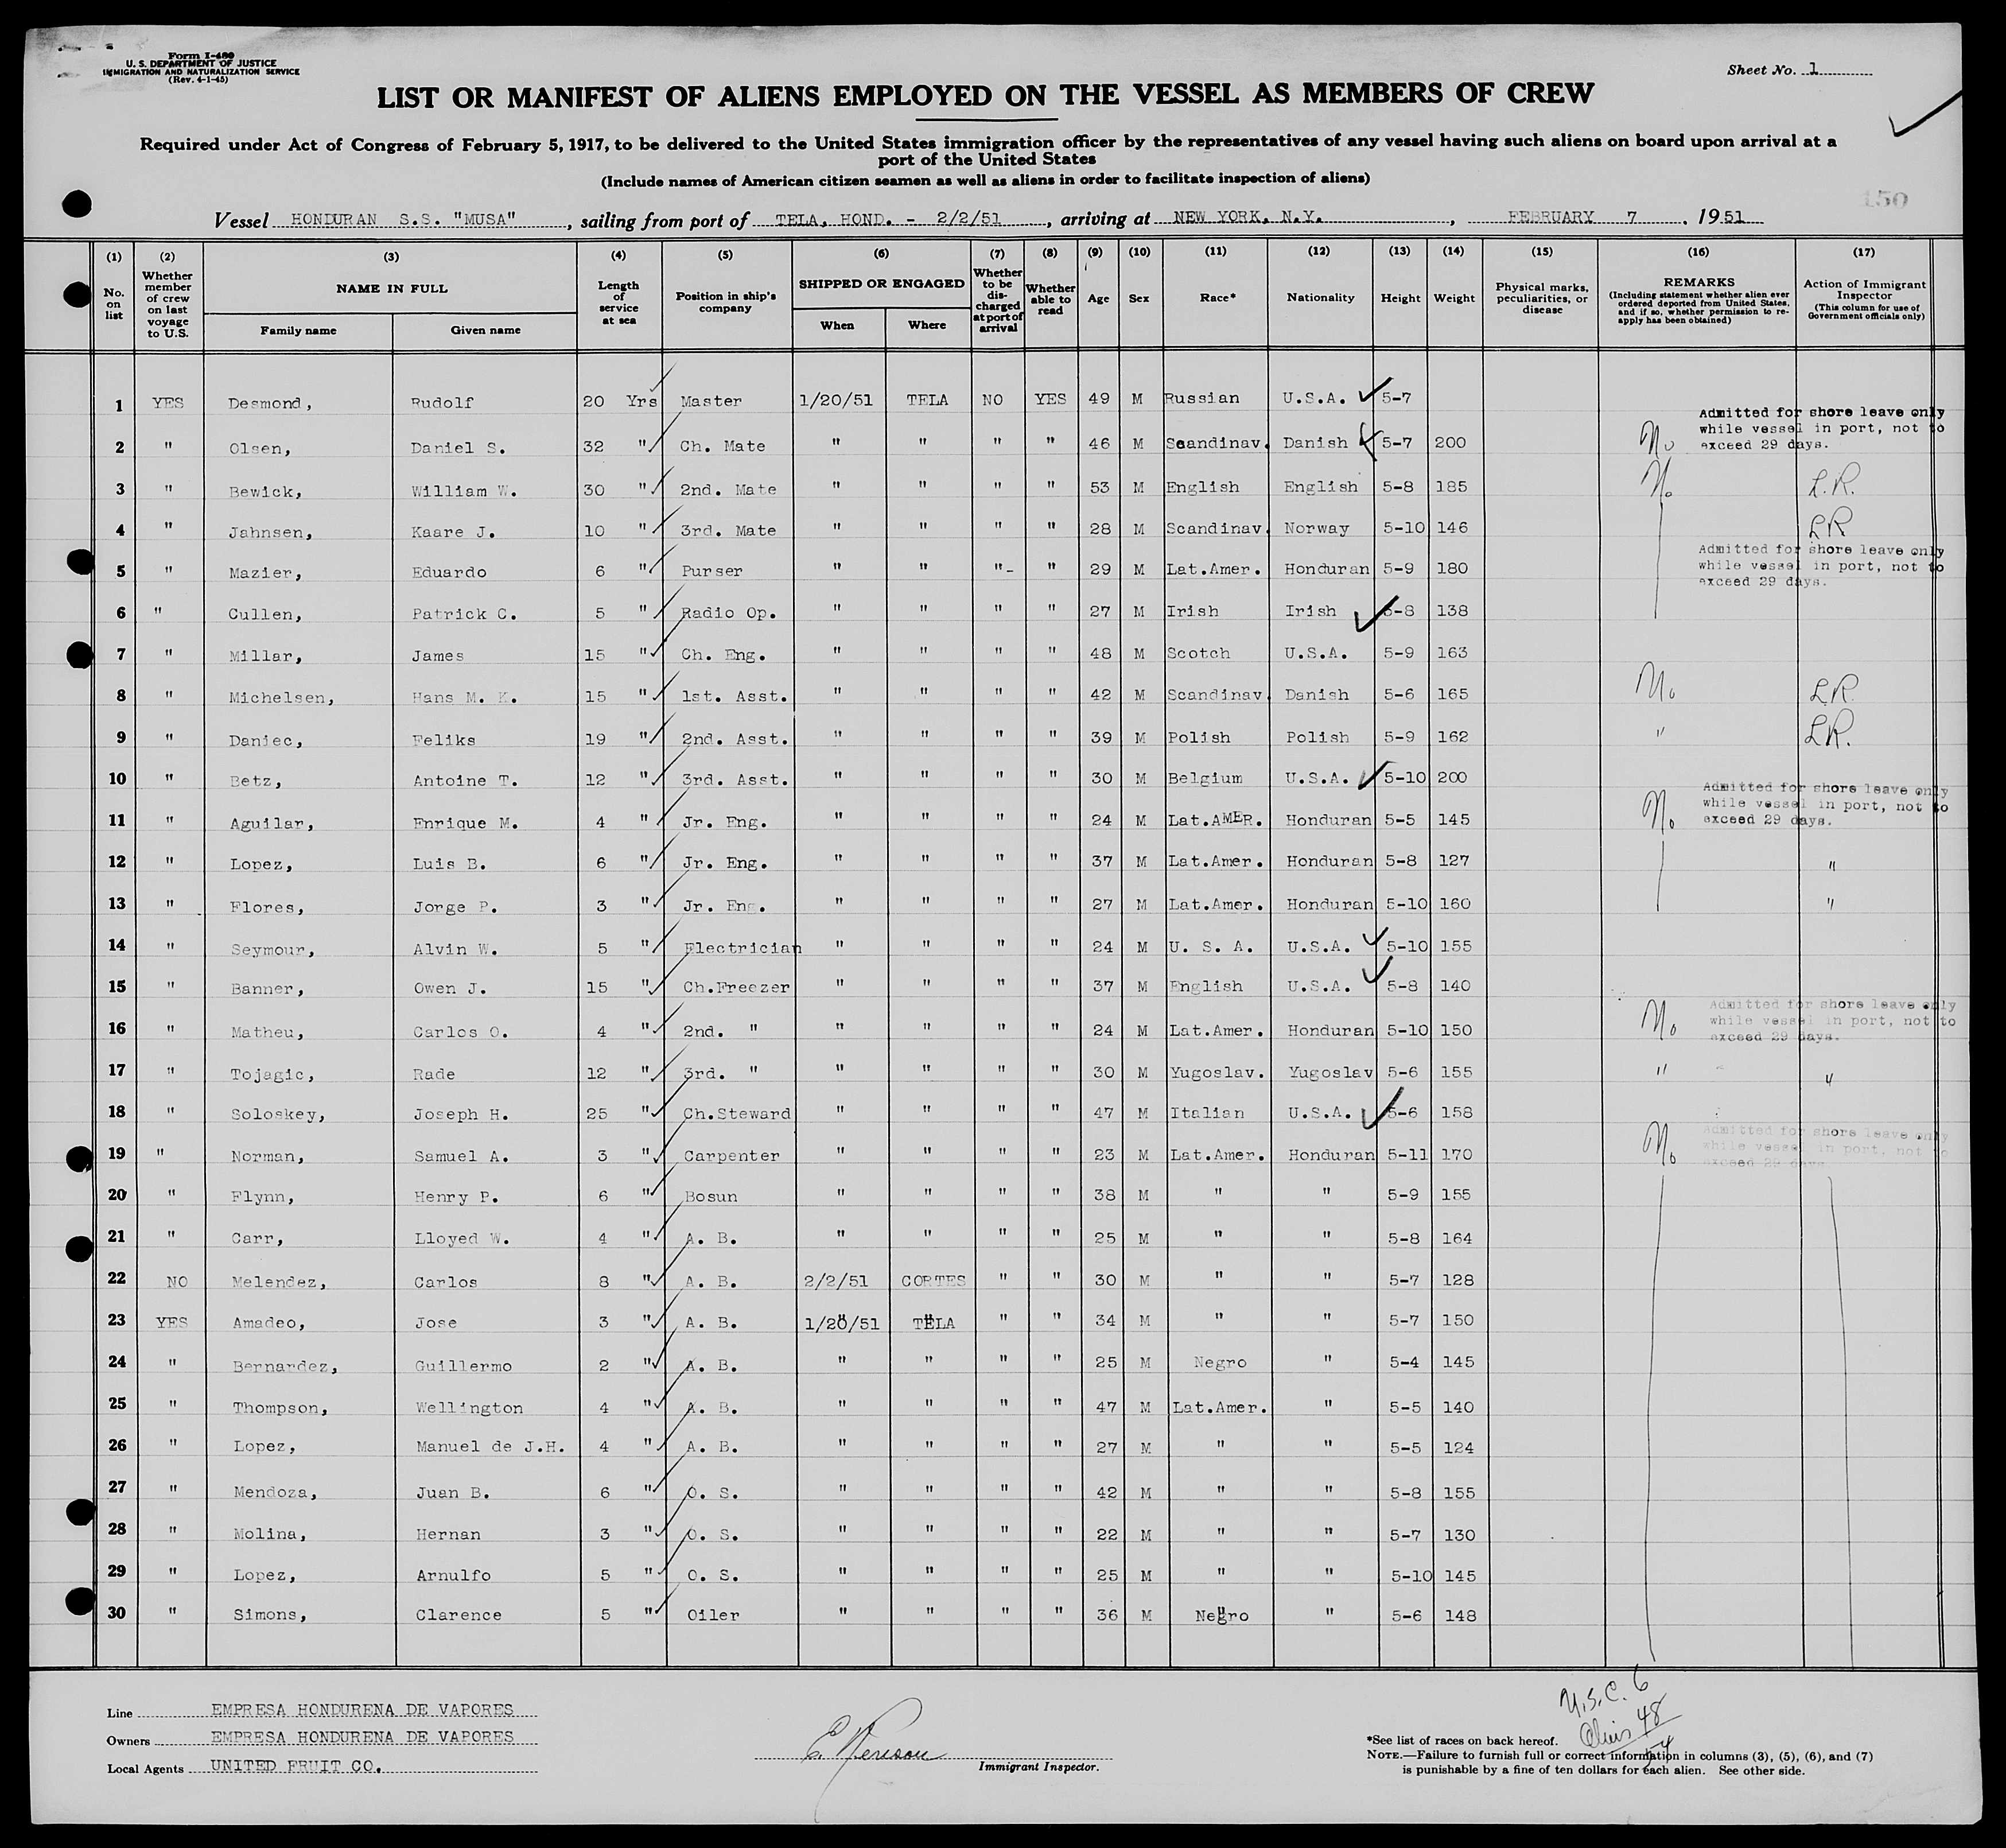 Form I-480
U. S. DEPARTMENT OF JUSTICE
IMMIGRATION AND NATURALIZATION SERVICE
(Rev. 4-1-45)
Sheet No. 1
LIST OR MANIFEST OF ALIENS EMPLOYED ON THE VESSEL AS MEMBERS OF CREW
Required under Act of Congress of February 5, 1917, to be delivered to the United States immigration officer by the representatives of any vessel having such aliens on board upon arrival at a
port of the United States
(Include names of American citizen seamen as well as aliens in order to facilitate inspection of aliens)
150
Vessel HONDURAN S.S. "MUSA", sailing from port of TELA, HOND. - 2/2/51, arriving at NEW YORK, N.Y., FEBRUARY 7, 1951
(1) No. on list
(2) Whether member of crew on last voyage to U.S.
(3) NAME IN FULL Family name Given name
(4) Length of service at sea
(5) Position in ship's company
(6) SHIPPED OR ENGAGED When Where
(7) Whether to be discharged at port of arrival
(8) Whether able to read
(9) Age
(10) Sex
(11) Race*
(12) Nationality
(13) Height
(14) Weight
(15) Physical marks, peculiarities, or disease
(16) REMARKS (Including statement whether alien ever ordered deported from United States, and if so, whether permission to re-apply has been obtained)
(17) Action of Immigrant Inspector (This column for use of Government officials only)
1 YES Desmond, Rudolf 20 Yrs Master 1/20/51 TELA NO YES 49 M Russian U.S.A. 5-7
Admitted for shore leave only while vessel in port, not to exceed 29 days.
2 " Olsen, Daniel S. 32 " Ch. Mate " " " " 46 M Scandinav. Danish 5-7 200 No
3 " Bewick, William W. 30 " 2nd. Mate " " " " 53 M English English 5-8 185 No L.R.
4 " Jahnsen, Kaare J. 10 " 3rd. Mate " " " " 28 M Scandinav. Norway 5-10 146 LR
Admitted for shore leave only while vessel in port, not to exceed 29 days.
5 " Mazier, Eduardo 6 " Purser " " "- " 29 M Lat.Amer. Honduran 5-9 180
6 " Cullen, Patrick C. 5 " Radio Op. " " " " 27 M Irish Irish 5-8 138
7 " Millar, James 15 " Ch. Eng. " " " " 48 M Scotch U.S.A. 5-9 163
8 " Michelsen, Hans M. K. 15 " 1st. Asst. " " " " 42 M Scandinav. Danish 5-6 165 No L.R.
9 " Daniec, Feliks 19 " 2nd. Asst. " " " " 39 M Polish Polish 5-9 162 " L.R.
10 " Betz, Antoine T. 12 " 3rd. Asst. " " " " 30 M Belgium U.S.A. 5-10 200
Admitted for shore leave only while vessel in port, not to exceed 29 days.
11 " Aguilar, Enrique M. 4 " Jr. Eng. " " " " 24 M Lat.AMER. Honduran 5-5 145 No
12 " Lopez, Luis B. 6 " Jr. Eng. " " " " 37 M Lat.Amer. Honduran 5-8 127 "
13 " Flores, Jorge P. 3 " Jr. Eng. " " " " 27 M Lat.Amer. Honduran 5-10 160 "
14 " Seymour, Alvin W. 5 " Electrician " " " " 24 M U. S. A. U.S.A. 5-10 155
15 " Banner, Owen J. 15 " Ch.Freezer " " " " 37 M English U.S.A. 5-8 140
Admitted for shore leave only while vessel in port, not to exceed 29 days.
16 " Matheu, Carlos O. 4 " 2nd. " " " " " 24 M Lat.Amer. Honduran 5-10 150 No
17 " Tojagic, Rade 12 " 3rd. " " " " " 30 M Yugoslav. Yugoslav 5-6 155 " "
18 " Soloskey, Joseph H. 25 " Ch.Steward " " " " 47 M Italian U.S.A. 5-6 158
Admitted for shore leave only while vessel in port, not to exceed 29 days.
19 " Norman, Samuel A. 3 " Carpenter " " " " 23 M Lat.Amer. Honduran 5-11 170 No
20 " Flynn, Henry P. 6 " Bosun " " " " 38 M " " 5-9 155
21 " Carr, Lloyed W. 4 " A. B. " " " " 25 M " " 5-8 164
22 NO Melendez, Carlos 8 " A. B. 2/2/51 CORTES " " 30 M " " 5-7 128
23 YES Amadeo, Jose 3 " A. B. 1/20/51 TELA " " 34 M " " 5-7 150
24 " Bernardez, Guillermo 2 " A. B. " " " " 25 M Negro " 5-4 145
25 " Thompson, Wellington 4 " A. B. " " " " 47 M Lat.Amer. " 5-5 140
26 " Lopez, Manuel de J.H. 4 " A. B. " " " " 27 M " " 5-5 124
27 " Mendoza, Juan B. 6 " O. S. " " " " 42 M " " 5-8 155
28 " Molina, Hernan 3 " O. S. " " " " 22 M " " 5-7 130
29 " Lopez, Arnulfo 5 " O. S. " " " " 25 M " " 5-10 145
30 " Simons, Clarence 5 " Oiler " " " " 36 M Negro " 5-6 148
U.S.C. 6
48
54
Line EMPRESA HONDURENA DE VAPORES
Owners EMPRESA HONDURENA DE VAPORES
Local Agents UNITED FRUIT CO.
Immigrant Inspector.
*See list of races on back hereof.
NOTE.—Failure to furnish full or correct information in columns (3), (5), (6), and (7)
is punishable by a fine of ten dollars for each alien. See other side.